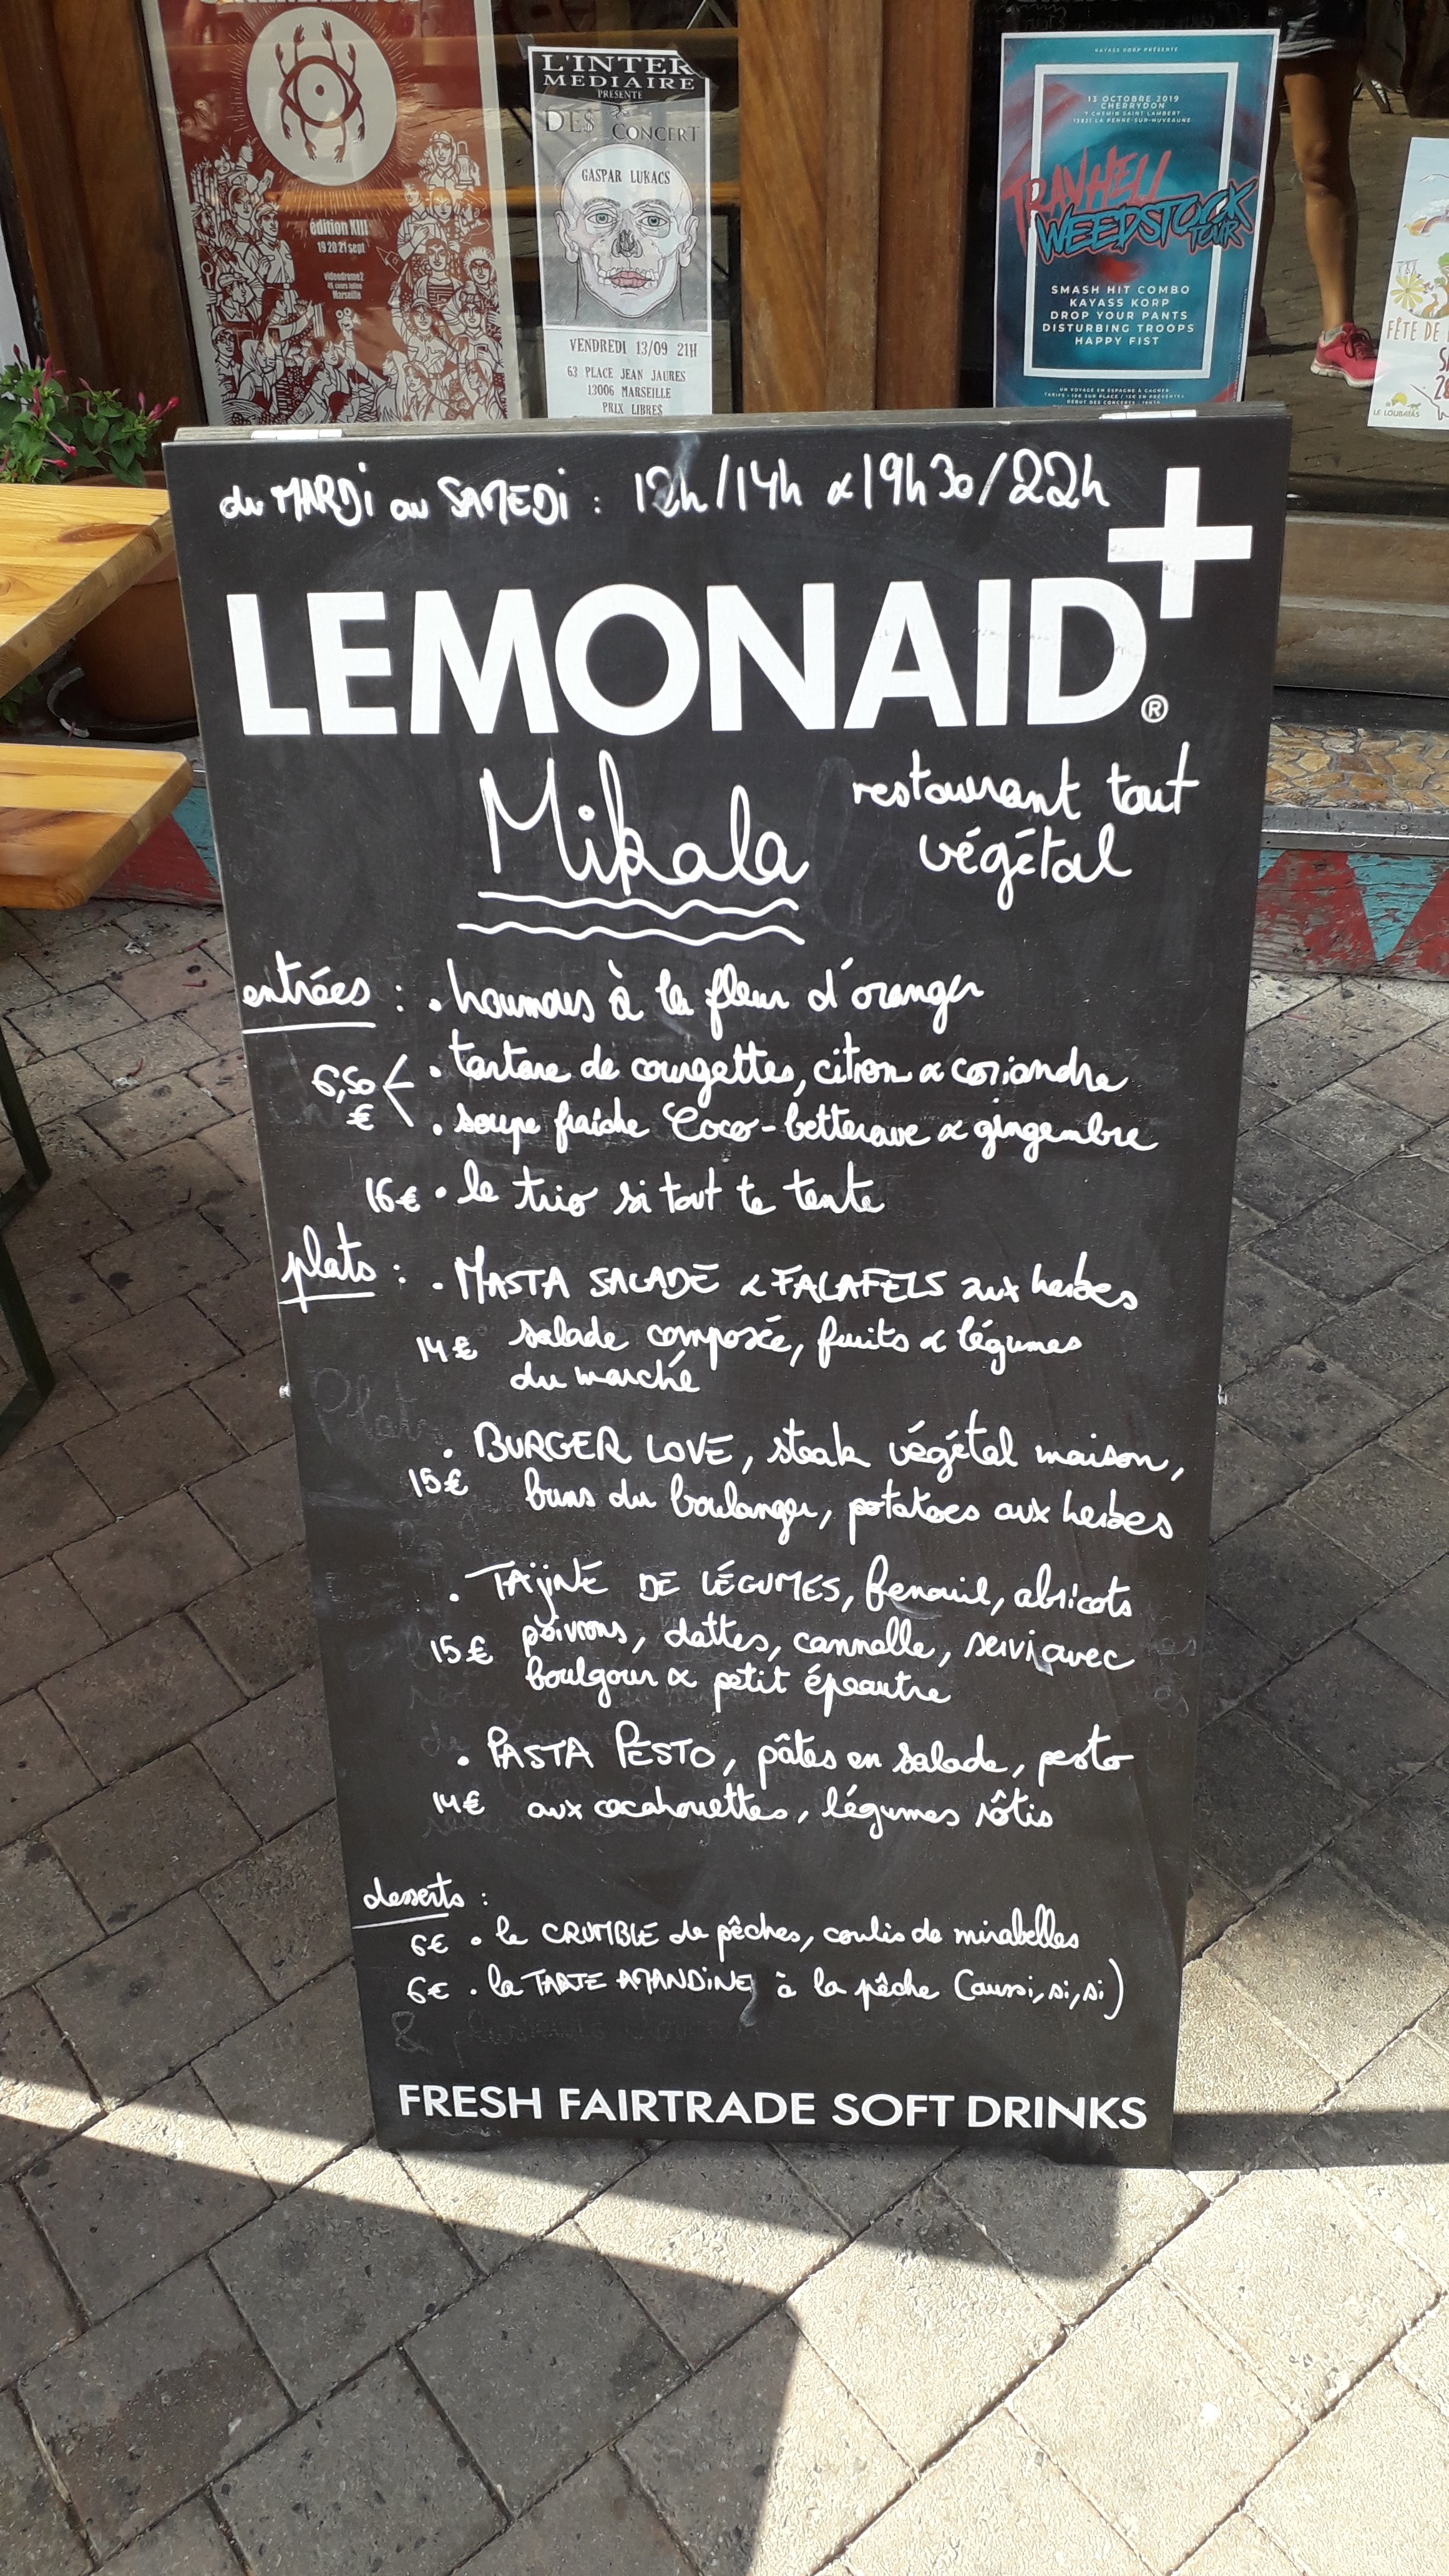 édition XIII
19 20 21 sept
videodrome2
49, cours Julien
Marseille
L'INTER
MEDIAIRE
PRESENTE
DES CONCERT
GASPAR LUKACS
VENDREDI 13/09 21H
63 PLACE JEAN JAURES
13006 MARSEILLE
PRIX LIBRES
KAYASS KORP PRÉSENTE
13 OCTOBRE 2019
CHERRYDON
7 CHEMIN SAINT LAMBERT
13821 LA PENNE-SUR-HUVEAUNE
TRAVHELL
WEEDSTOCK
TOUR
SMASH HIT COMBO
KAYASS KORP
DROP YOUR PANTS
DISTURBING TROOPS
HAPPY FIST
UN VOYAGE EN ESPAGNE À GAGNER
FÊTE DE
LE LOUBATAS
du MARDi au SAMEDi : 12h/14h & 19h30/22h
LEMONAID+®
Mikala restaurant tout
végétal
entrées : • houmous à la fleur d'oranger
6,50 • tartare de courgettes, citron & coriandre
€ • soupe fraîche Coco-betterave & gingembre
16€ • le trio si tout te tente
plats : • MASTA SALADE & FALAFELS aux herbes
14€ salade composée, fruits & légumes
du marché
• BURGER LOVE, steak végétal maison,
15€ buns du boulanger, potatoes aux herbes
• TAJINE DE LÉGUMES, fenouil, abricots
15€ poivrons, dattes, cannelle, servi avec
boulgour & petit épeautre
• PASTA PESTO, pâtes en salade, pesto
14€ aux cacahouettes, légumes rôtis
desserts :
6€ • le CRUMBLE de pêches, coulis de mirabelles
6€ • la TARTE AMANDINE à la pêche (aussi, si, si)
FRESH FAIRTRADE SOFT DRINKS